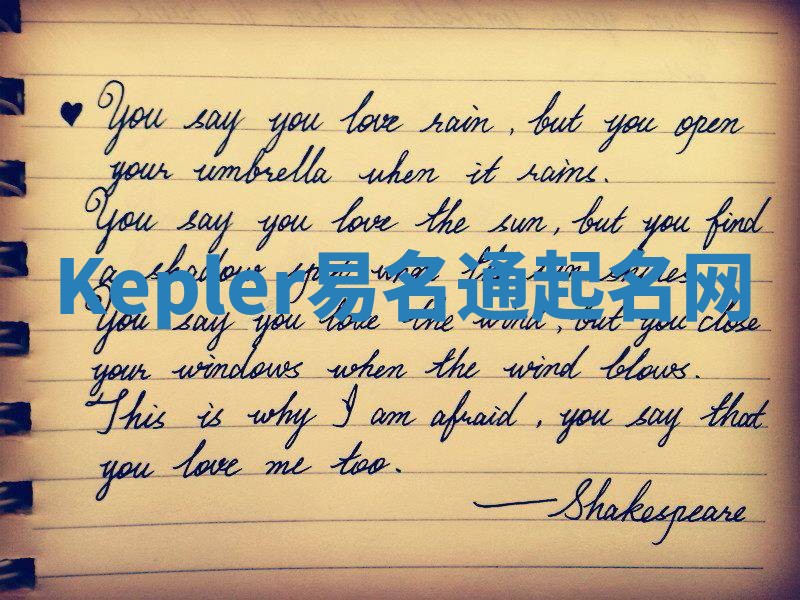 ♥ You say you love rain, but you open
your umbrella when it rains.
You say you love the sun, but you find
a shadow spot when the sun shines.
Kepler易名通起名网
You say you love the wind, but you close
your windows when the wind blows.
This is why I am afraid, you say that
you love me too.
—Shakespeare